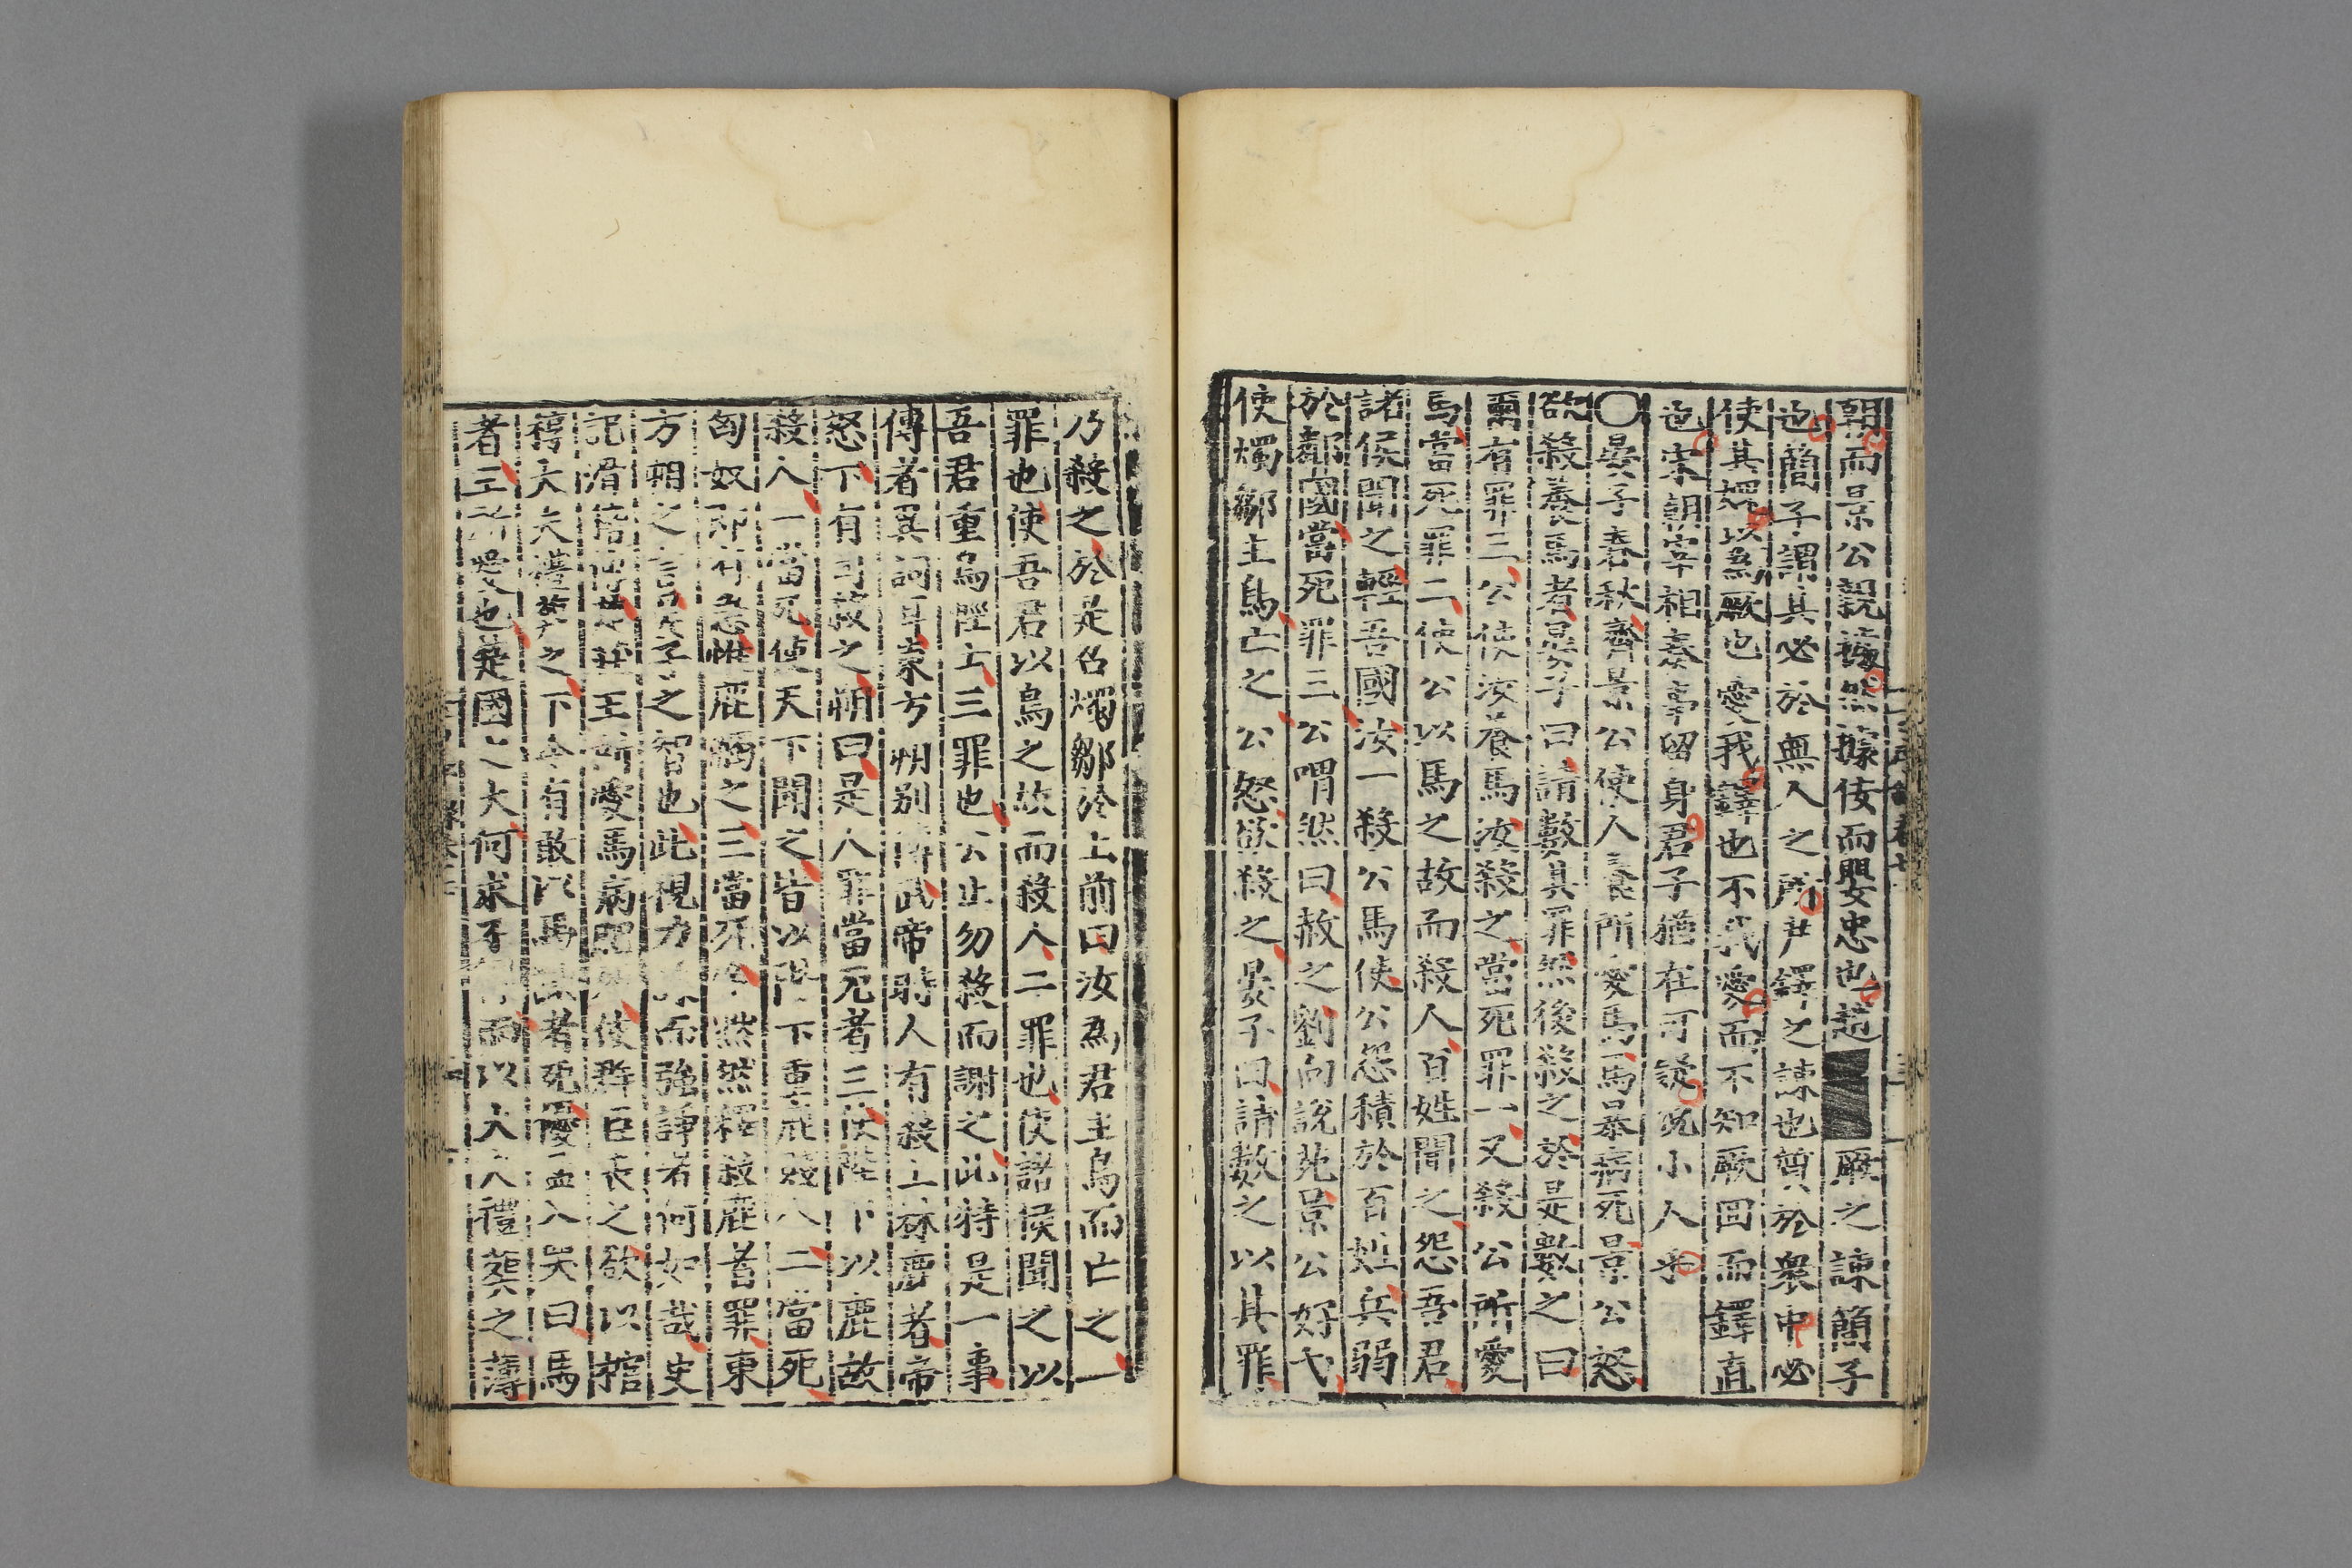 朝而景公親據然據佞而嬰忠也趙厥之諫簡子
也簡子謂其必於無人之所尹鐸之諫也質於衆中必
使其媿以爲厥也愛我鐸也不我愛而不知厥回而鐸直
也宋朝宰相奏事留身君子猶在可疑况小人乎
〇晏子春秋齊景公使人養所愛馬馬暴病死景公怒
欲殺養馬者晏子曰請數其罪然後殺之於是數之曰
爾有罪三公使汝養馬汝殺之當死罪一又殺公所愛
馬當死罪二使公以馬之故而殺人百姓聞之怨吾君
諸侯聞之輕吾國汝一殺公馬使公怨積於百姓兵弱
於鄰國當死罪三公喟然曰赦之劉向說苑景公好弋
使燭鄒主鳥亡之公怒欲殺之晏子曰請數之以其罪
乃殺之於是召燭鄒於上前曰汝為君主鳥而亡之一
罪也使吾君以鳥之故而殺人二罪也使諸侯聞之以
吾君重鳥陛士三罪也公止勿殺而謝之此特是一事
傳者異詞耳蒙方朔别傳武帝時人有殺上林鹿者帝
怒下有司殺之朔曰是人罪當死者三使陛下以鹿故
殺人一當死使天下聞之皆以陛下重鹿賤人二當死
匈奴即有急惟鹿觸之三當死帝默然釋殺鹿者罪東
方朔之言晏子之智也此視力諫而強諍者何如哉史
記滑稽傳楚莊王所愛馬病肥死使群臣喪之欲以棺
槨大夫禮葬之下令有敢以馬諫者死優孟入哭曰馬
者王所愛也楚國之大何求不得而以大夫禮葬之薄